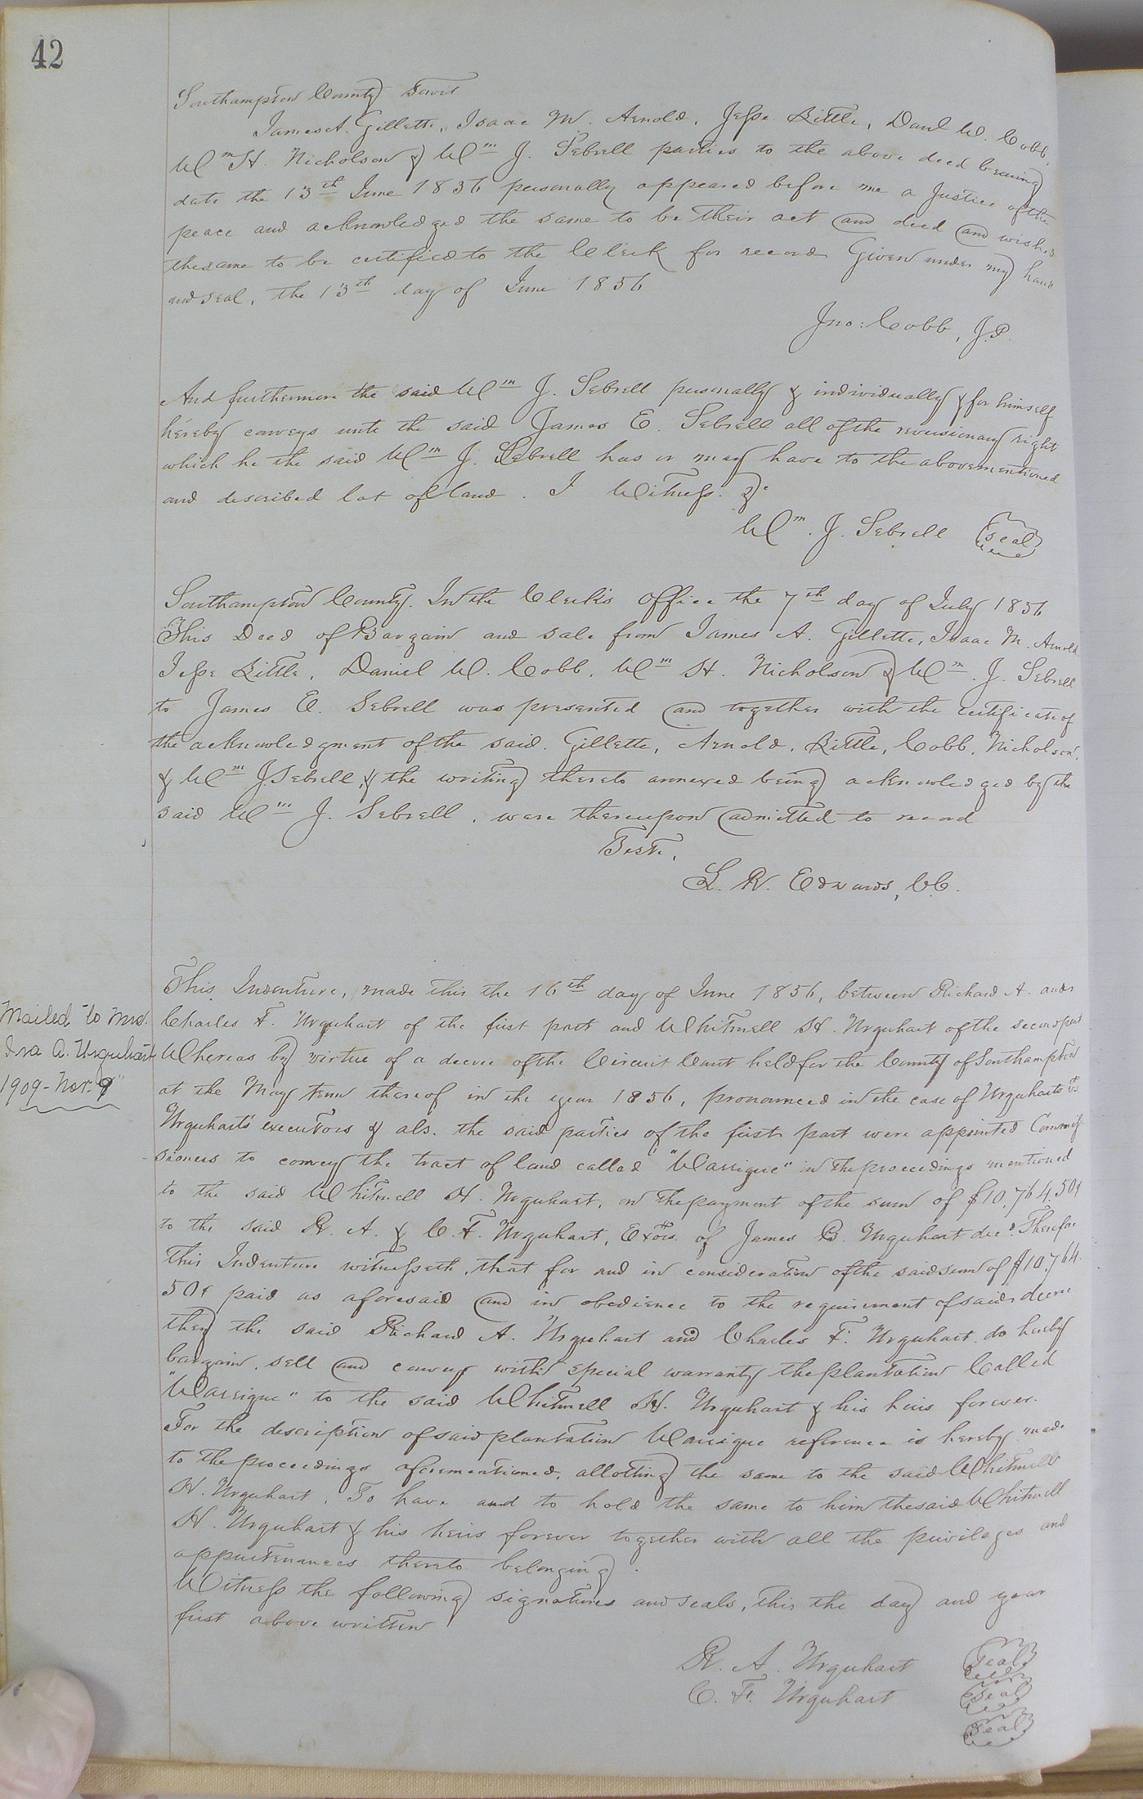 42
Southampton County Towit
James A. Gillette, Isaac M. Arnold, Jesse Little, Danl W. Cobb,
Wm H. Nicholson & Wm J. Sebrell parties to the above deed bearing
date the 13th June 1856 personally appeared before me a Justice of the
peace and acknowledged the same to be their act and deed and wished
the same to be certified to the Clerk for record Given under my hand
and seal, the 13th day of June 1856
Jno: Cobb, J.P.
And furthermore the said Wm J. Sebrell personally & individually & for himself
hereby conveys unto the said James E. Sebrell all of the reversionary right
which he the said Wm J. Sebrell has or may have to the abovementioned
and described lot of land. I Witness &c
Wm. J. Sebrell seal
Southampton County. In the Clerk's office the 7th day of July 1856
This Deed of Bargain and sale from James A. Gillette, Isaac M. Arnold
Jesse Little, Daniel W. Cobb, Wm H. Nicholson & Wm. J. Sebrell
to James E. Sebrell was presented and together with the certificate of
the acknowledgment of the said Gillette, Arnold, Little, Cobb, Nicholson,
& Wm J. Sebrell, & the writing thereto annexed being acknowledged by the
said Wm J. Sebrell, were thereupon admitted to record
Teste,
L. R. Edwards, C.C.
This Indenture, made this the 16th day of June 1856, between Richard A. and
Charles F. Urquhart of the first part and Whitmell H. Urquhart of the second part
Mailed to Mrs.
Ira A. Urquhart
1909 - Nov. 9"
Whereas by virtue of a decree of the Circuit Court held for the County of Southampton
at the May term thereof in the year 1856, pronounced in the case of Urquharts vs
Urquhart's executors & als. the said parties of the first part were appointed Commis-
sioners to convey the tract of land called "Warrique" in the proceedings mentioned
to the said Whitmell H. Urquhart, on the payment of the sum of $10,764,50¢
to the said R. A. & C. F. Urquhart, Exors. of James B. Urquhart decd. Therefore
this Indenture witnesseth, that for and in consideration of the said sum of $10,764.
50¢ paid as aforesaid and in obedience to the requirement of said decree
they the said Richard A. Urquhart and Charles F. Urquhart, do hereby
bargain, sell and convey with special warranty the plantation Called
"Warrique" to the said Whitmell H. Urquhart & his heirs forever.
For the description of said plantation Warrique reference is hereby made
to the proceedings aforementioned, allotting the same to the said Whitmell
H. Urquhart. To have and to hold the same to him the said Whitmell
H. Urquhart & his heirs forever together with all the privileges and
appurtenances thereto belonging.
Witness the following signatures and seals, this the day and year
first above written
R. A. Urquhart seal
C. F. Urquhart seal
seal